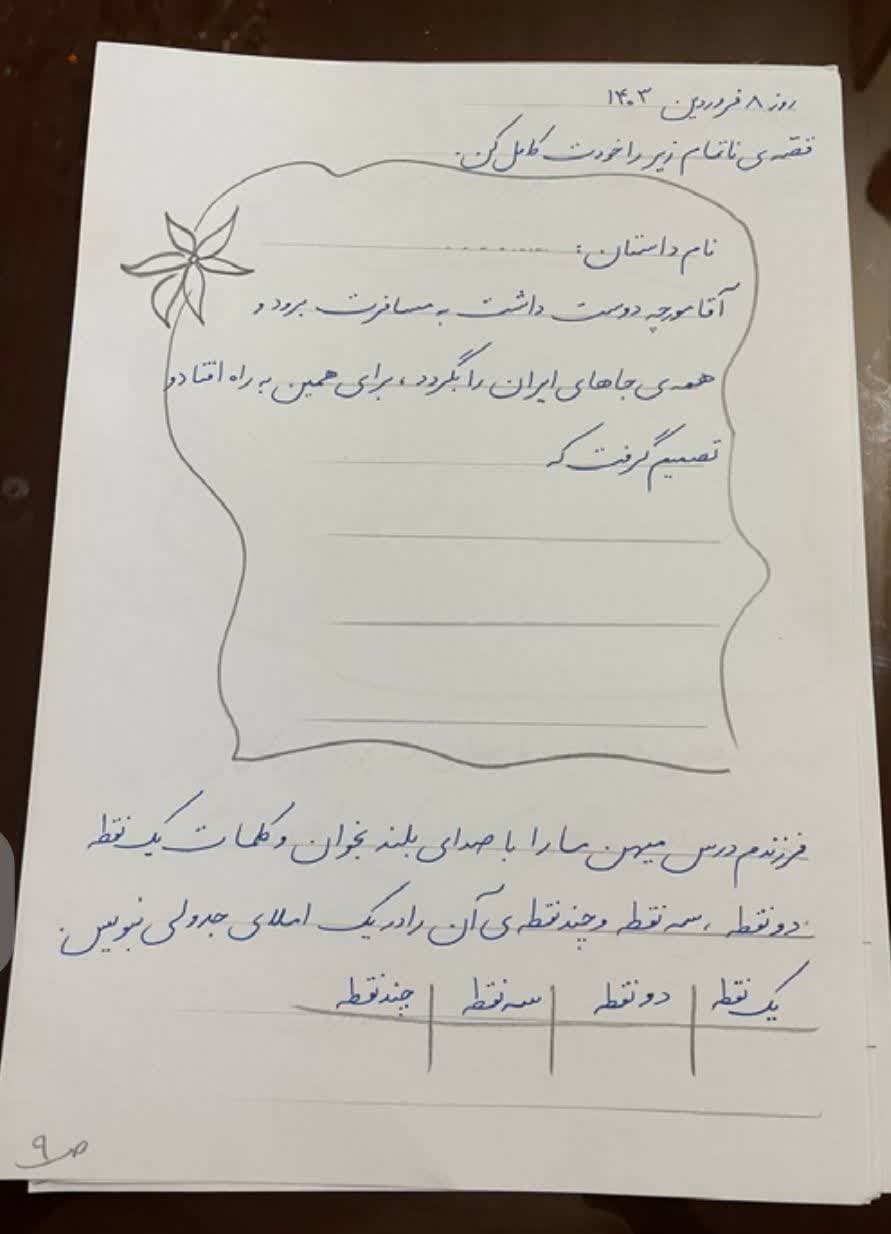 روز ۸ فروردین ۱۴۰۳
قصه‌ی ناتمام زیر را خودت کامل کن.
نام داستان: ........
آقا مورچه دوست داشت به مسافرت برود و
همه‌ی جاهای ایران را بگردد، برای همین به راه افتاد و
تصمیم گرفت که
فرزندم درس میهن ما را با صدای بلند بخوان و کلمات یک نقطه
دو نقطه، سه نقطه و چند نقطه‌ی آن را در یک املای جدولی بنویس.
یک نقطه | دو نقطه | سه نقطه | چند نقطه
ص ۹